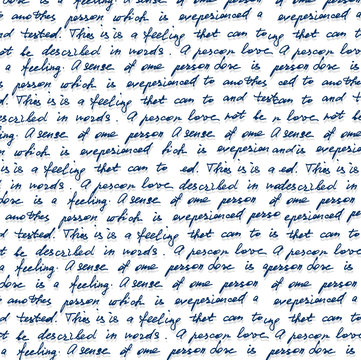 is a feeling. A sense of one person dose is person dose is
s another person, which is eveperienced a eveperienced a
nd tested. This is is a feeling that can to ing that can t
ot be descrlbed in words. A poscon love A poscon lov
a feeling. A sense of one person dose is person dose is
s person which is eveperienced to anothes ced to anothe
d. This is is a feeling that can to and testcan to and
escrlbed in words. A poscon love not be n love not be
ing. A sense of one person A sense of one A sense of one
n which is eveperienced hich is eveperien and is eveperien
is is a feeling that can to ed. This is is a ed. This is is
in words. A poscon love descrlbed in wadescrlbed in
dose is a feeling. A sense of one person of one person
anothes person which is eveperienced perso eveperienced p
d tested. This is is a feeling that can to is that can to
t be descrlbed in words. A poscon love A poscon love
a feeling. A sense of one person dose is aperson dose is
dose is a feeling. A sense of one person of one person
s another person, which is eveperienced a eveperienced a
nd tested. This is is a feeling that can to ing that can t
ot be descrlbed in words. A poscon love A poscon lov
a feeling. A sense of one person dose is person dose is